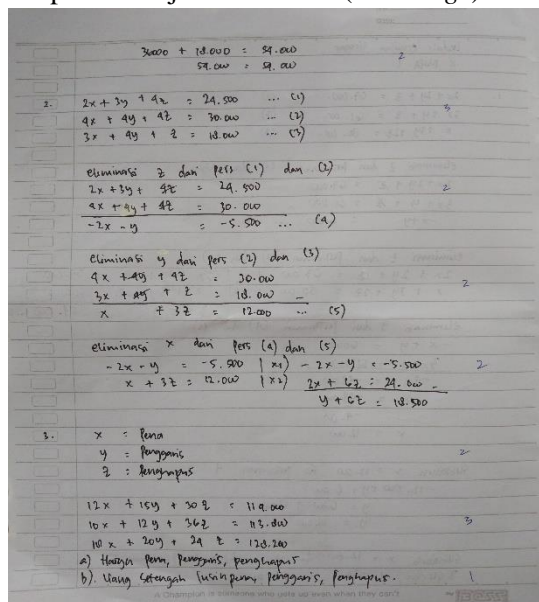 36000 + 18.000 = 54.000
54.000 = 54.000
2
2. 2x + 3y + 4z = 24.500 ... (1)
4x + 4y + 4z = 30.000 ... (2)
3
3x + 4y + z = 18.000 ... (3)
eliminasi z dari pers (1) dan (2)
2x + 3y + 4z = 24.500
2
4x + 4y + 4z = 30.000
-2x - y = -5.500 ... (4)
eliminasi y dari pers (2) dan (3)
4x + 4y + 4z = 30.000
3x + 4y + z = 18.000 -
2
x + 3z = 12.000 ... (5)
eliminasi x dari pers (4) dan (5)
-2x - y = -5.500 | x1) -2x - y = -5.500
2
x + 3z = 12.000 | x2) 2x + 6z = 24.000 -
y + 6z = 18.500
3. x = Pena
y = Penggaris
2
z = Penghapus
12x + 15y + 30z = 119.000
10x + 12y + 36z = 113.800
3
10x + 20y + 24z = 128.200
a) Harga pena, penggaris, penghapus
b). Uang setengah lusin pena, penggaris, penghapus.
1